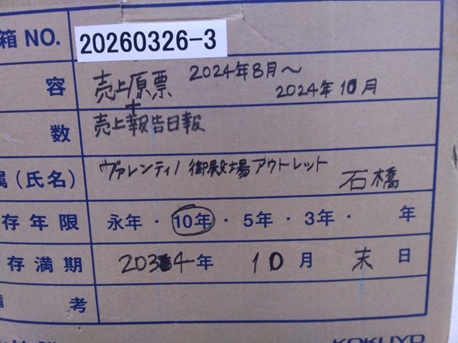 箱NO. 20260326-3
容 売上原票 2024年8月～
2024年10月
+
数 売上報告日報
属(氏名) ヴァレンティノ 御殿場アウトレット 石橋
存年限 永年・10年・5年・3年・ 年
存満期 2034年 10月 末日
備考
KOKUYO